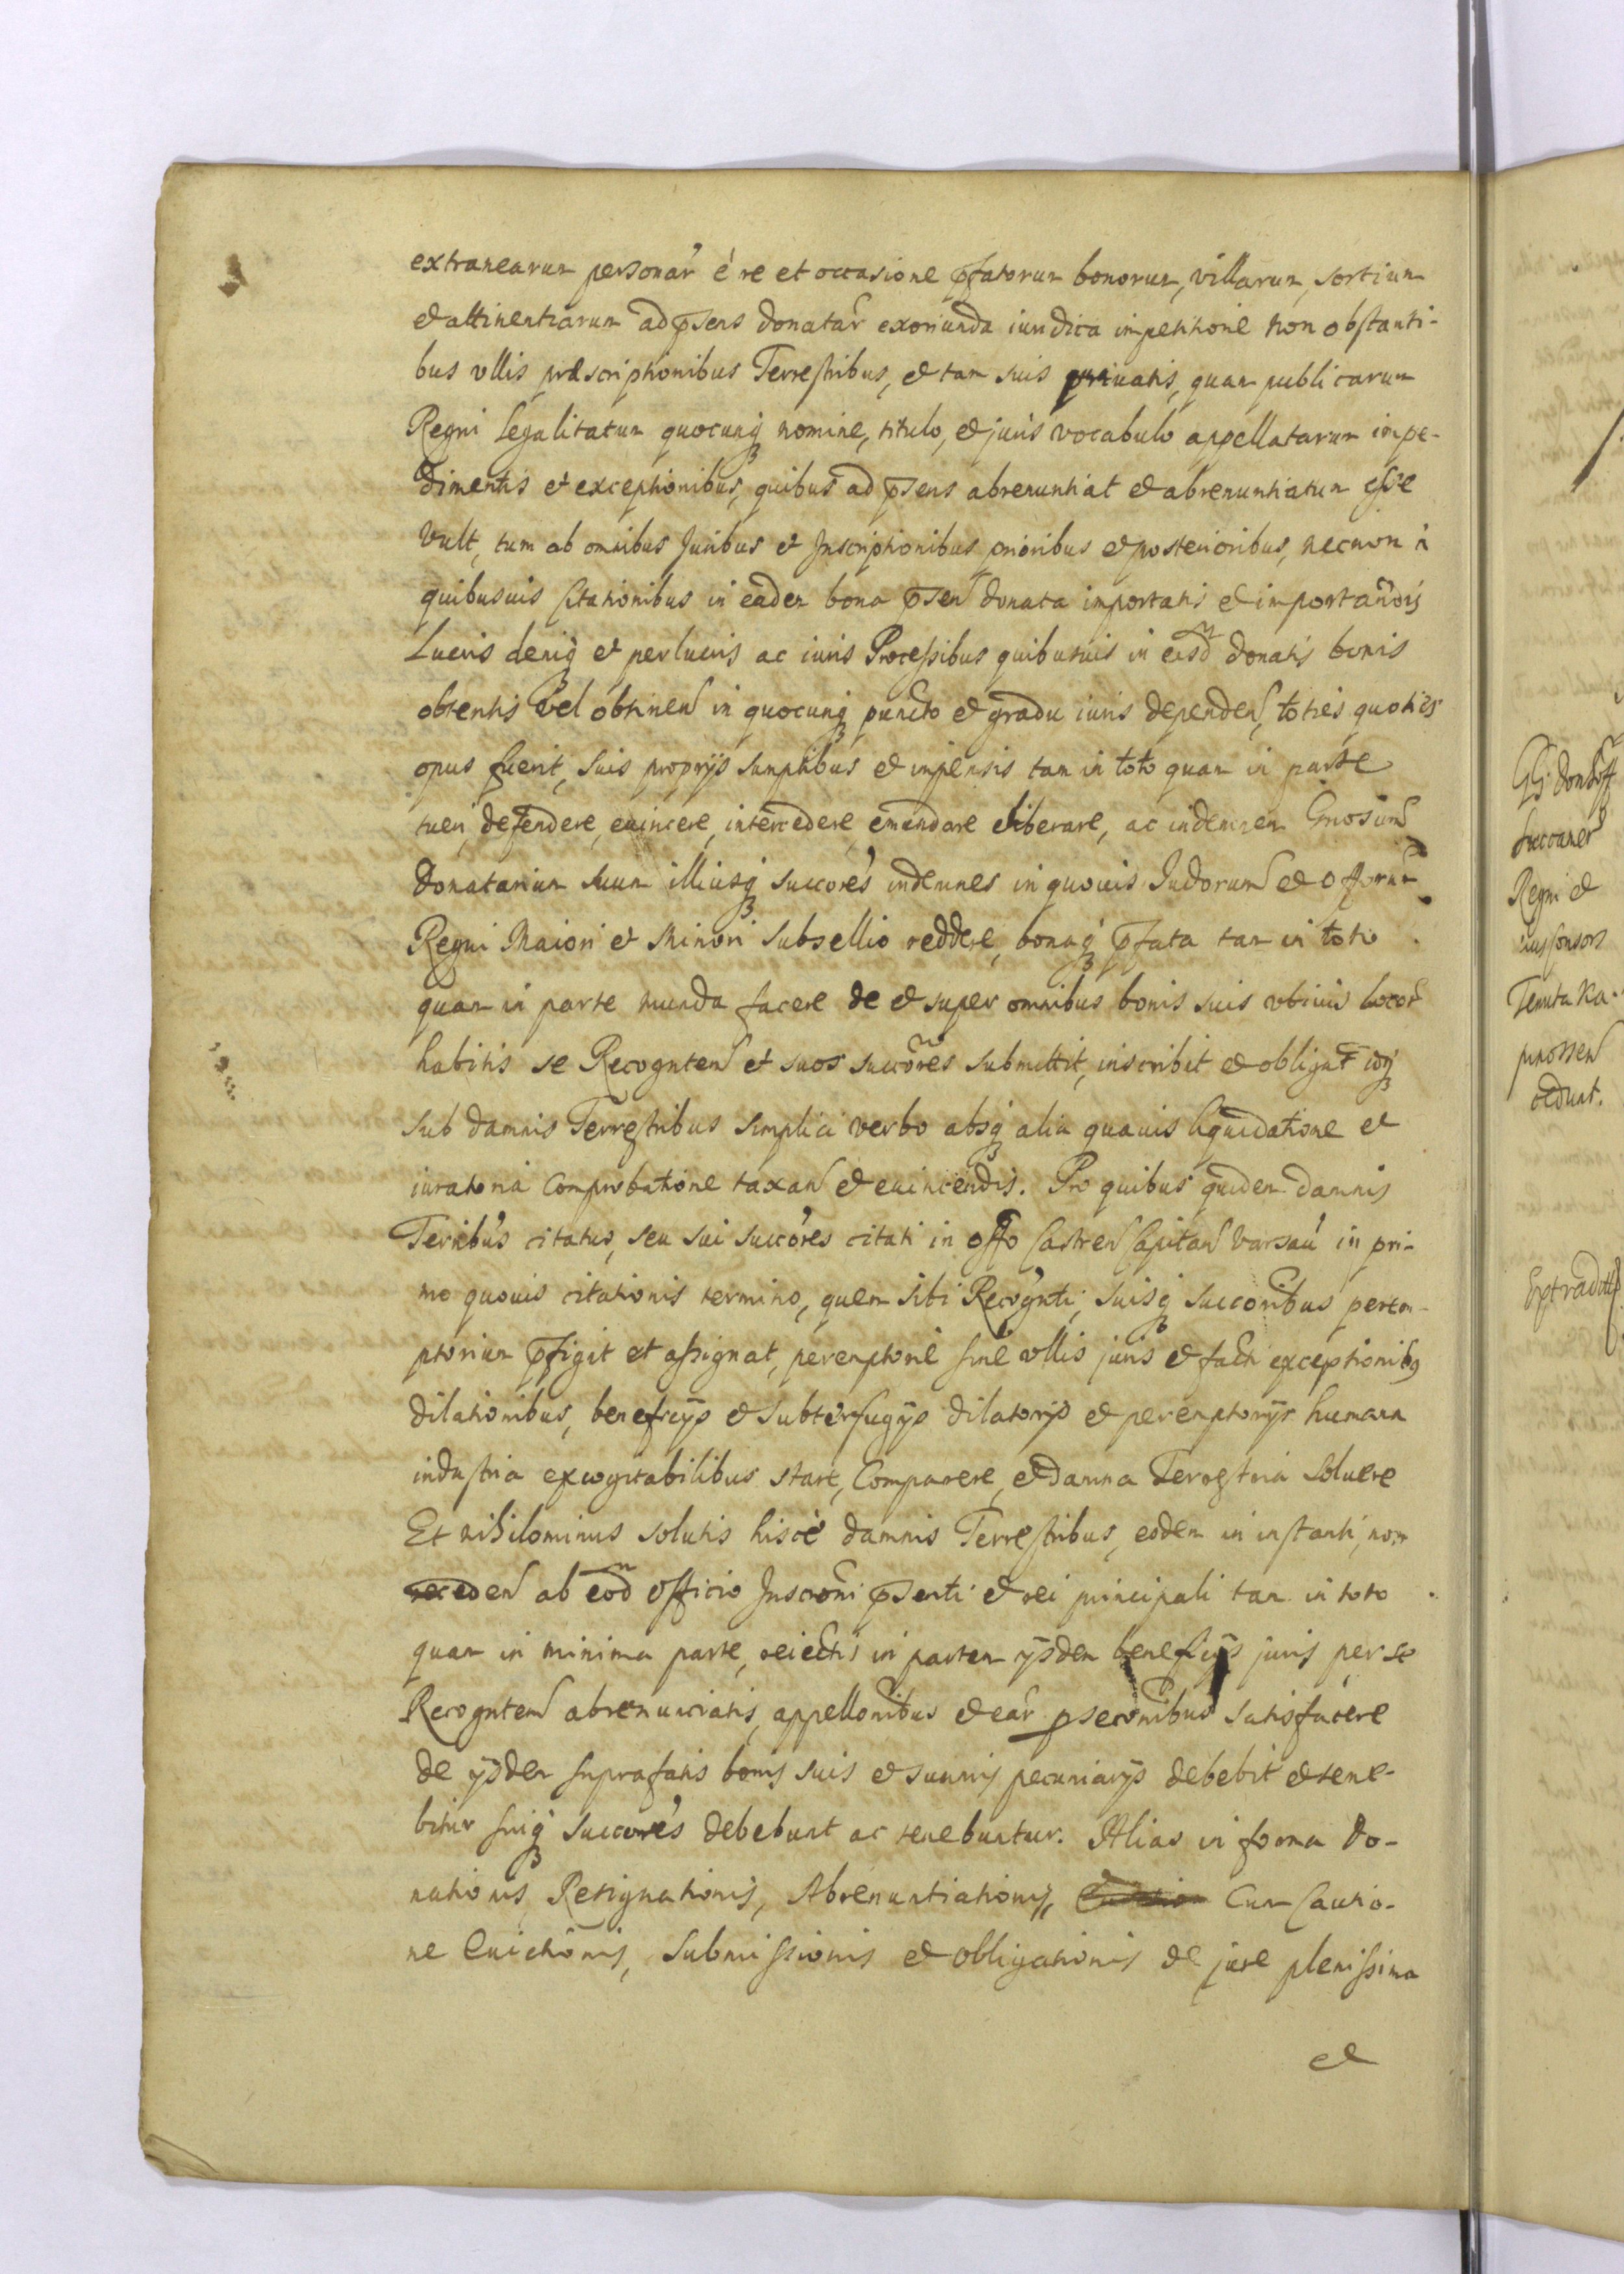 extranearum personar é re et occasione pfatorum bonorum, villarum, sortium
et attinentiarum ad psens donatar exoriunda iuridica impetitione non obstanti-
bus vllis præscriptionibus Terrestribus, et tam suis priuatis, quam publicarum
Regni Legalitatum quocunq nomine, titulo, et juris vocabulo appellatarum impe-
dimentis et exceptionibus, quibus ad psens abrenuntiat et abrenuntiatum esse
Vult, tum ab omnibus Juribus et Inscriptionibus prioribus et posterioribus, necnon à
quibusuis Citationibus in eadem bona psen donata importatis et importandis
Lucris deniq et perlucris ac iuris Processibus quibusuis in eisd donatis bonis
obtentis vel obtinen in quocunq puncto et gradu iuris dependen, toties quoties
opus fuerit, suis proprijs sumptibus et impensis tam in toto quam in parte
tueri, defendere, euincere, intercedere, emundare et liberare, ac indemnem Gnosum
Donatarium suum illiusq succores indemnes in quouis Judiorum et offorum
Regni Maiori et Minori subsellio reddere, bonaq pfata tam in toto
quam in parte munda facere de et super omnibus bonis suis vbiuis locor
habitis se Recognten et suos succores submittit, inscribit et obligat idq
sub damnis Terrestribus simplici verbo absq alia quauis liquidatione et
iuratoria Comprobatione taxan et euincendis. Pro quibus quidem damnis
Terribus citatus, seu sui succores citati in offo Castren Capitan Varsau in pri-
mo quouis citationis termino, quem sibi Recognti, suisq succoribus perem-
ptorium pfigit et assignat, peremptorie sine vllis juris et facti exceptionibus
dilationibus, beneficijs et subterfugijs dilatorijs et peremptorijs humana
industria excogitabilibus stare, Comparere, et damna Terrestria soluere
Et nihilominus solutis hisce damnis Terrestribus, eodem in instanti, non
receden ab eod Officio Inscroni psenti et rei principali tam in toto
quam in minima parte, reiectis in partem ijsdem beneficijs juris per se
Recognten abrenunciatis, appellonibus et ear pseconibus satisfacere
de ijsdem suprafatis bonis suis et summis pecuniarijs debebit et tene-
bitur suiq succores debebunt ac tenebuntur. Alias in forma Do-
nationis, Resignationis, Abrenuntiationis, Cum Cautio-
ne Euictionis, Submissionis et Obligationis de jure plenissima
et
GG. Donhoff
Succamer
Regni et
Tenuta Ka-
cedunt.